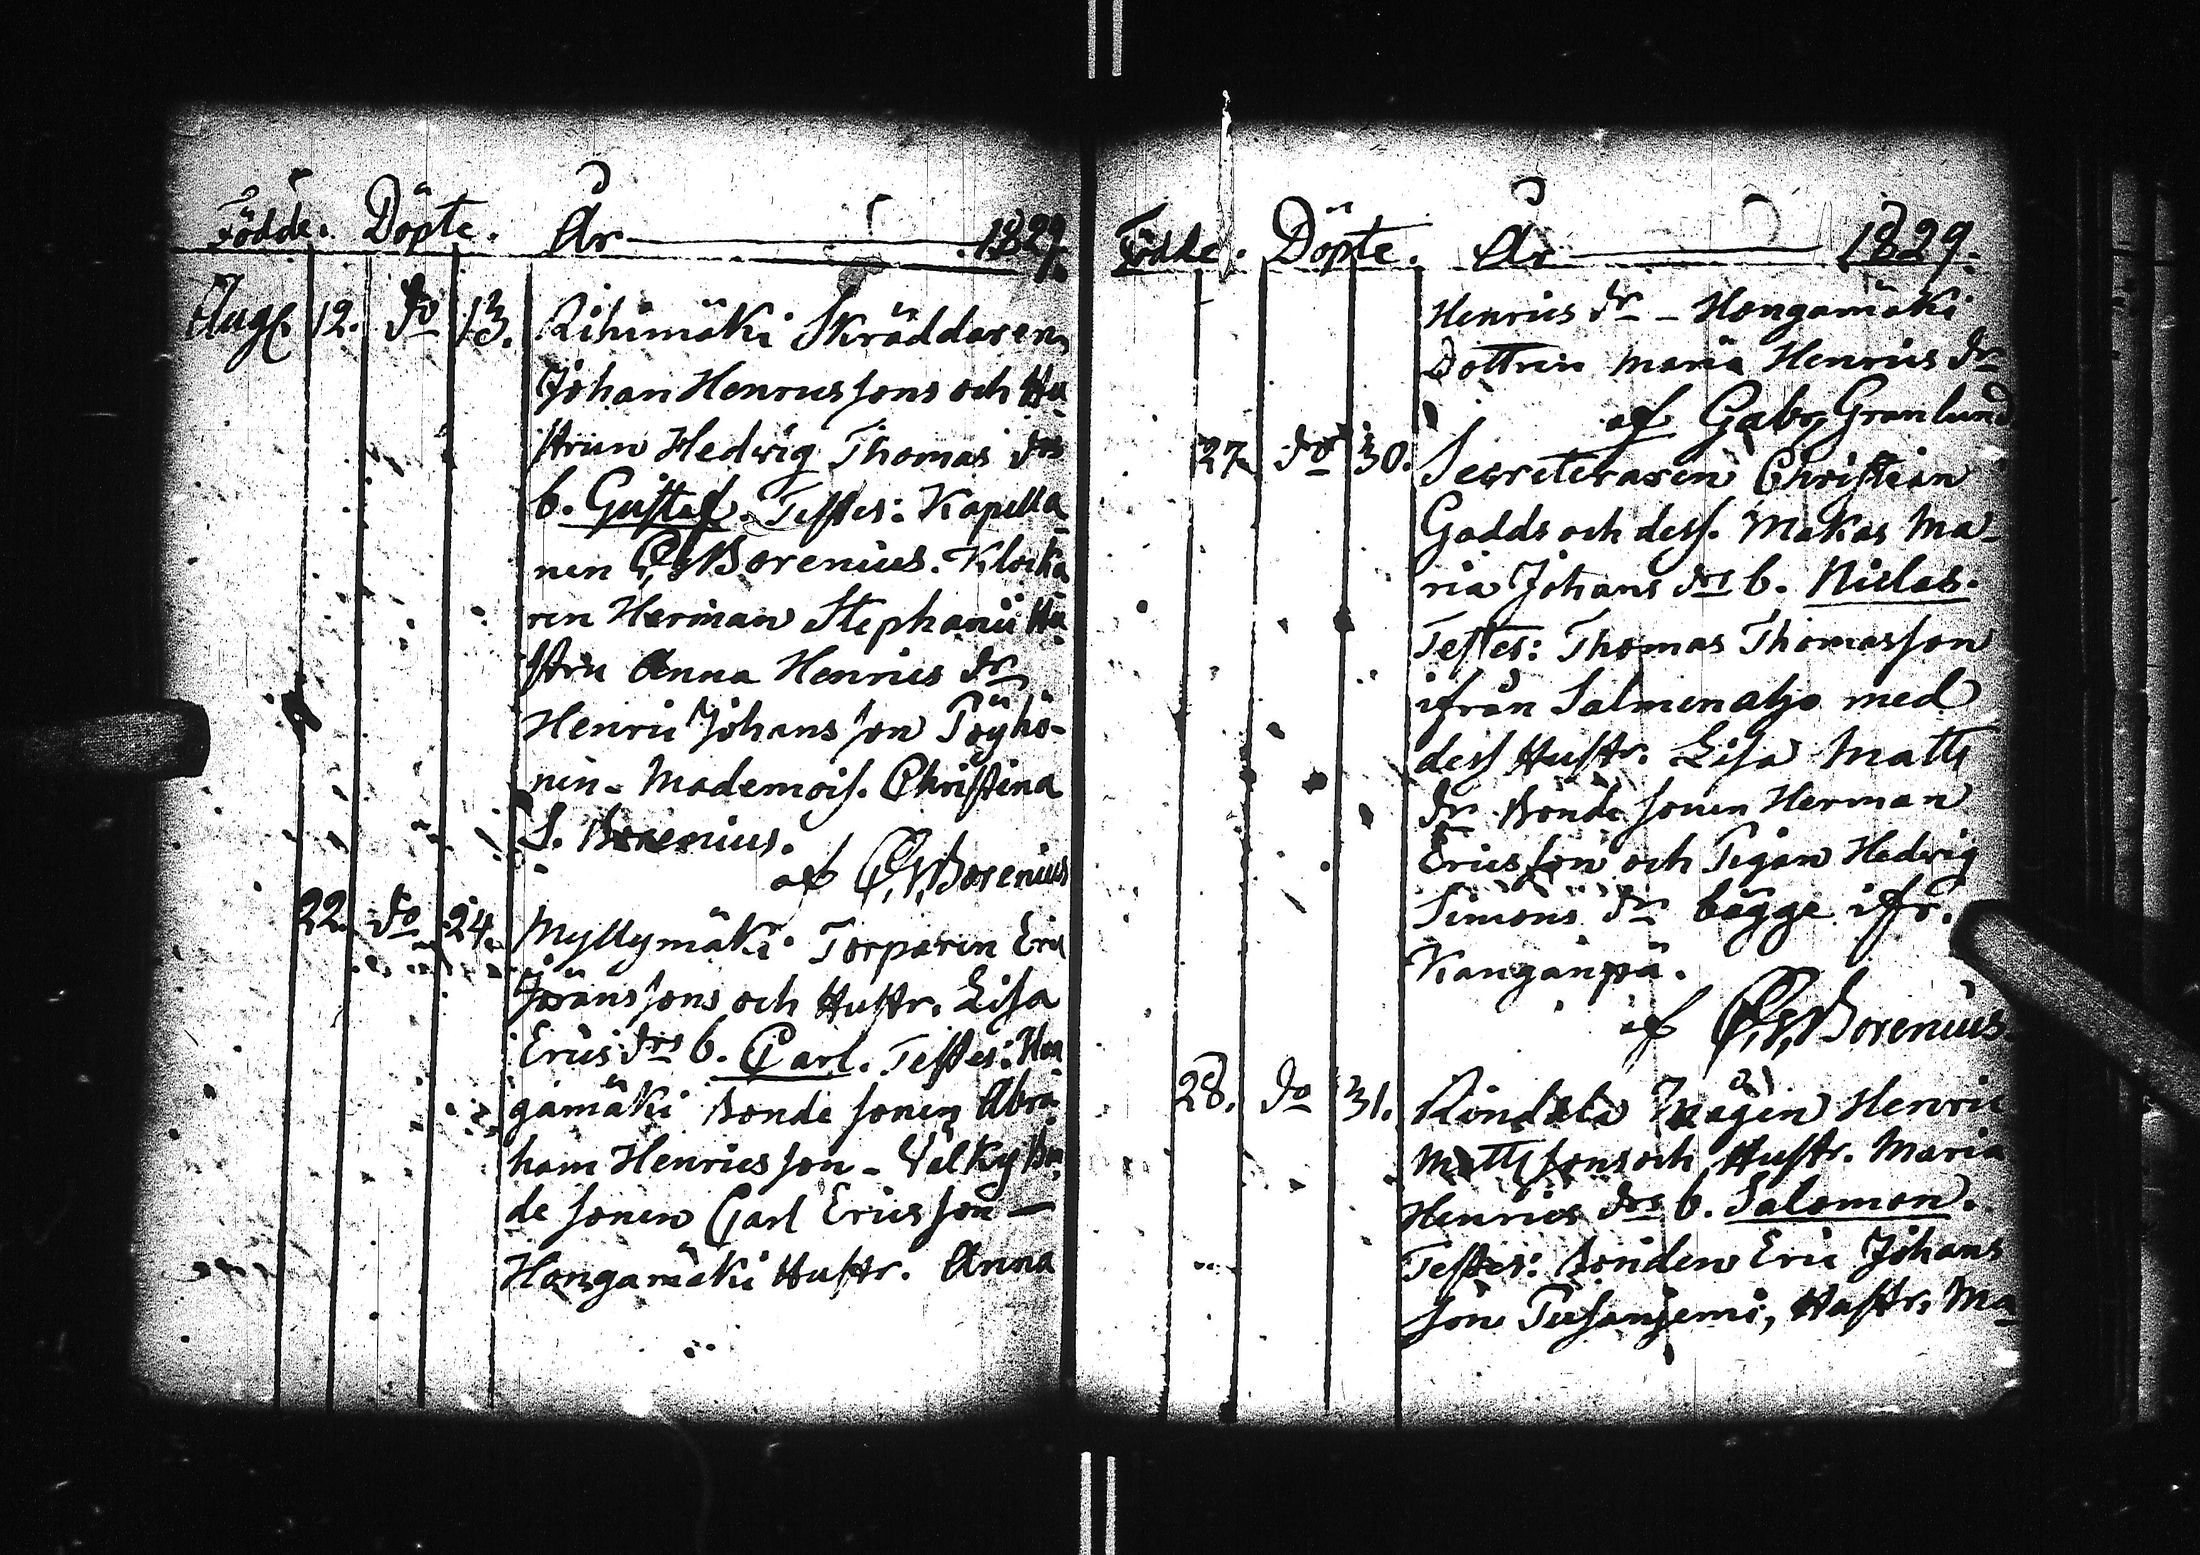 Födde. Döpte. År 1829.
Aug. 12. do 13. Rihimäki Skräddaren
Johan Henricssons och Hu
strun Hedvig Thomas drs
b. Gustaf. Testes: Kapella
nen C. J. Borenius. Klocka
ren Herman Stephanii Hu
stru Anna Henrics dr
Henric Johansson Pöyhö-
nen - Mademois. Christina
S. Borenius.
af C. J. Borenius
22. do 24. Myllymäki Torparen Eric
Jöranssons och Hustr. Lisa
Erics drs b. Carl. Testes: Hon
gamäki Bonde sonen Abra
ham Henricsson - Välky Bon
de sonen Carl Ericsson —
Hongamäki Hustr. Anna
Födde. Döpte. År 1829.
Henrics dr - Hongamäki
Dottren Maria Henrics dr
af Gabr. Granlund
27. do 30. Secreteraren Christian
Gadds och dess. Makas Ma-
ria Johans drs b. Niclas.
Testes: Thomas Thomasson
ifrån Salmenaljo med
dess Hustr. Lisa Matts
dr Bonde sonen Herman
Ericsson och Pigan Hedvig
Simons dr bägge ifr.
Kanganpä.
af C. J. Borenius.
28. do 31. Henric
Mattssons och Hustr. Maria
Henrics drs b. Salomon.
Testes: Bonden Eric Johans
son Hustr. Ma-